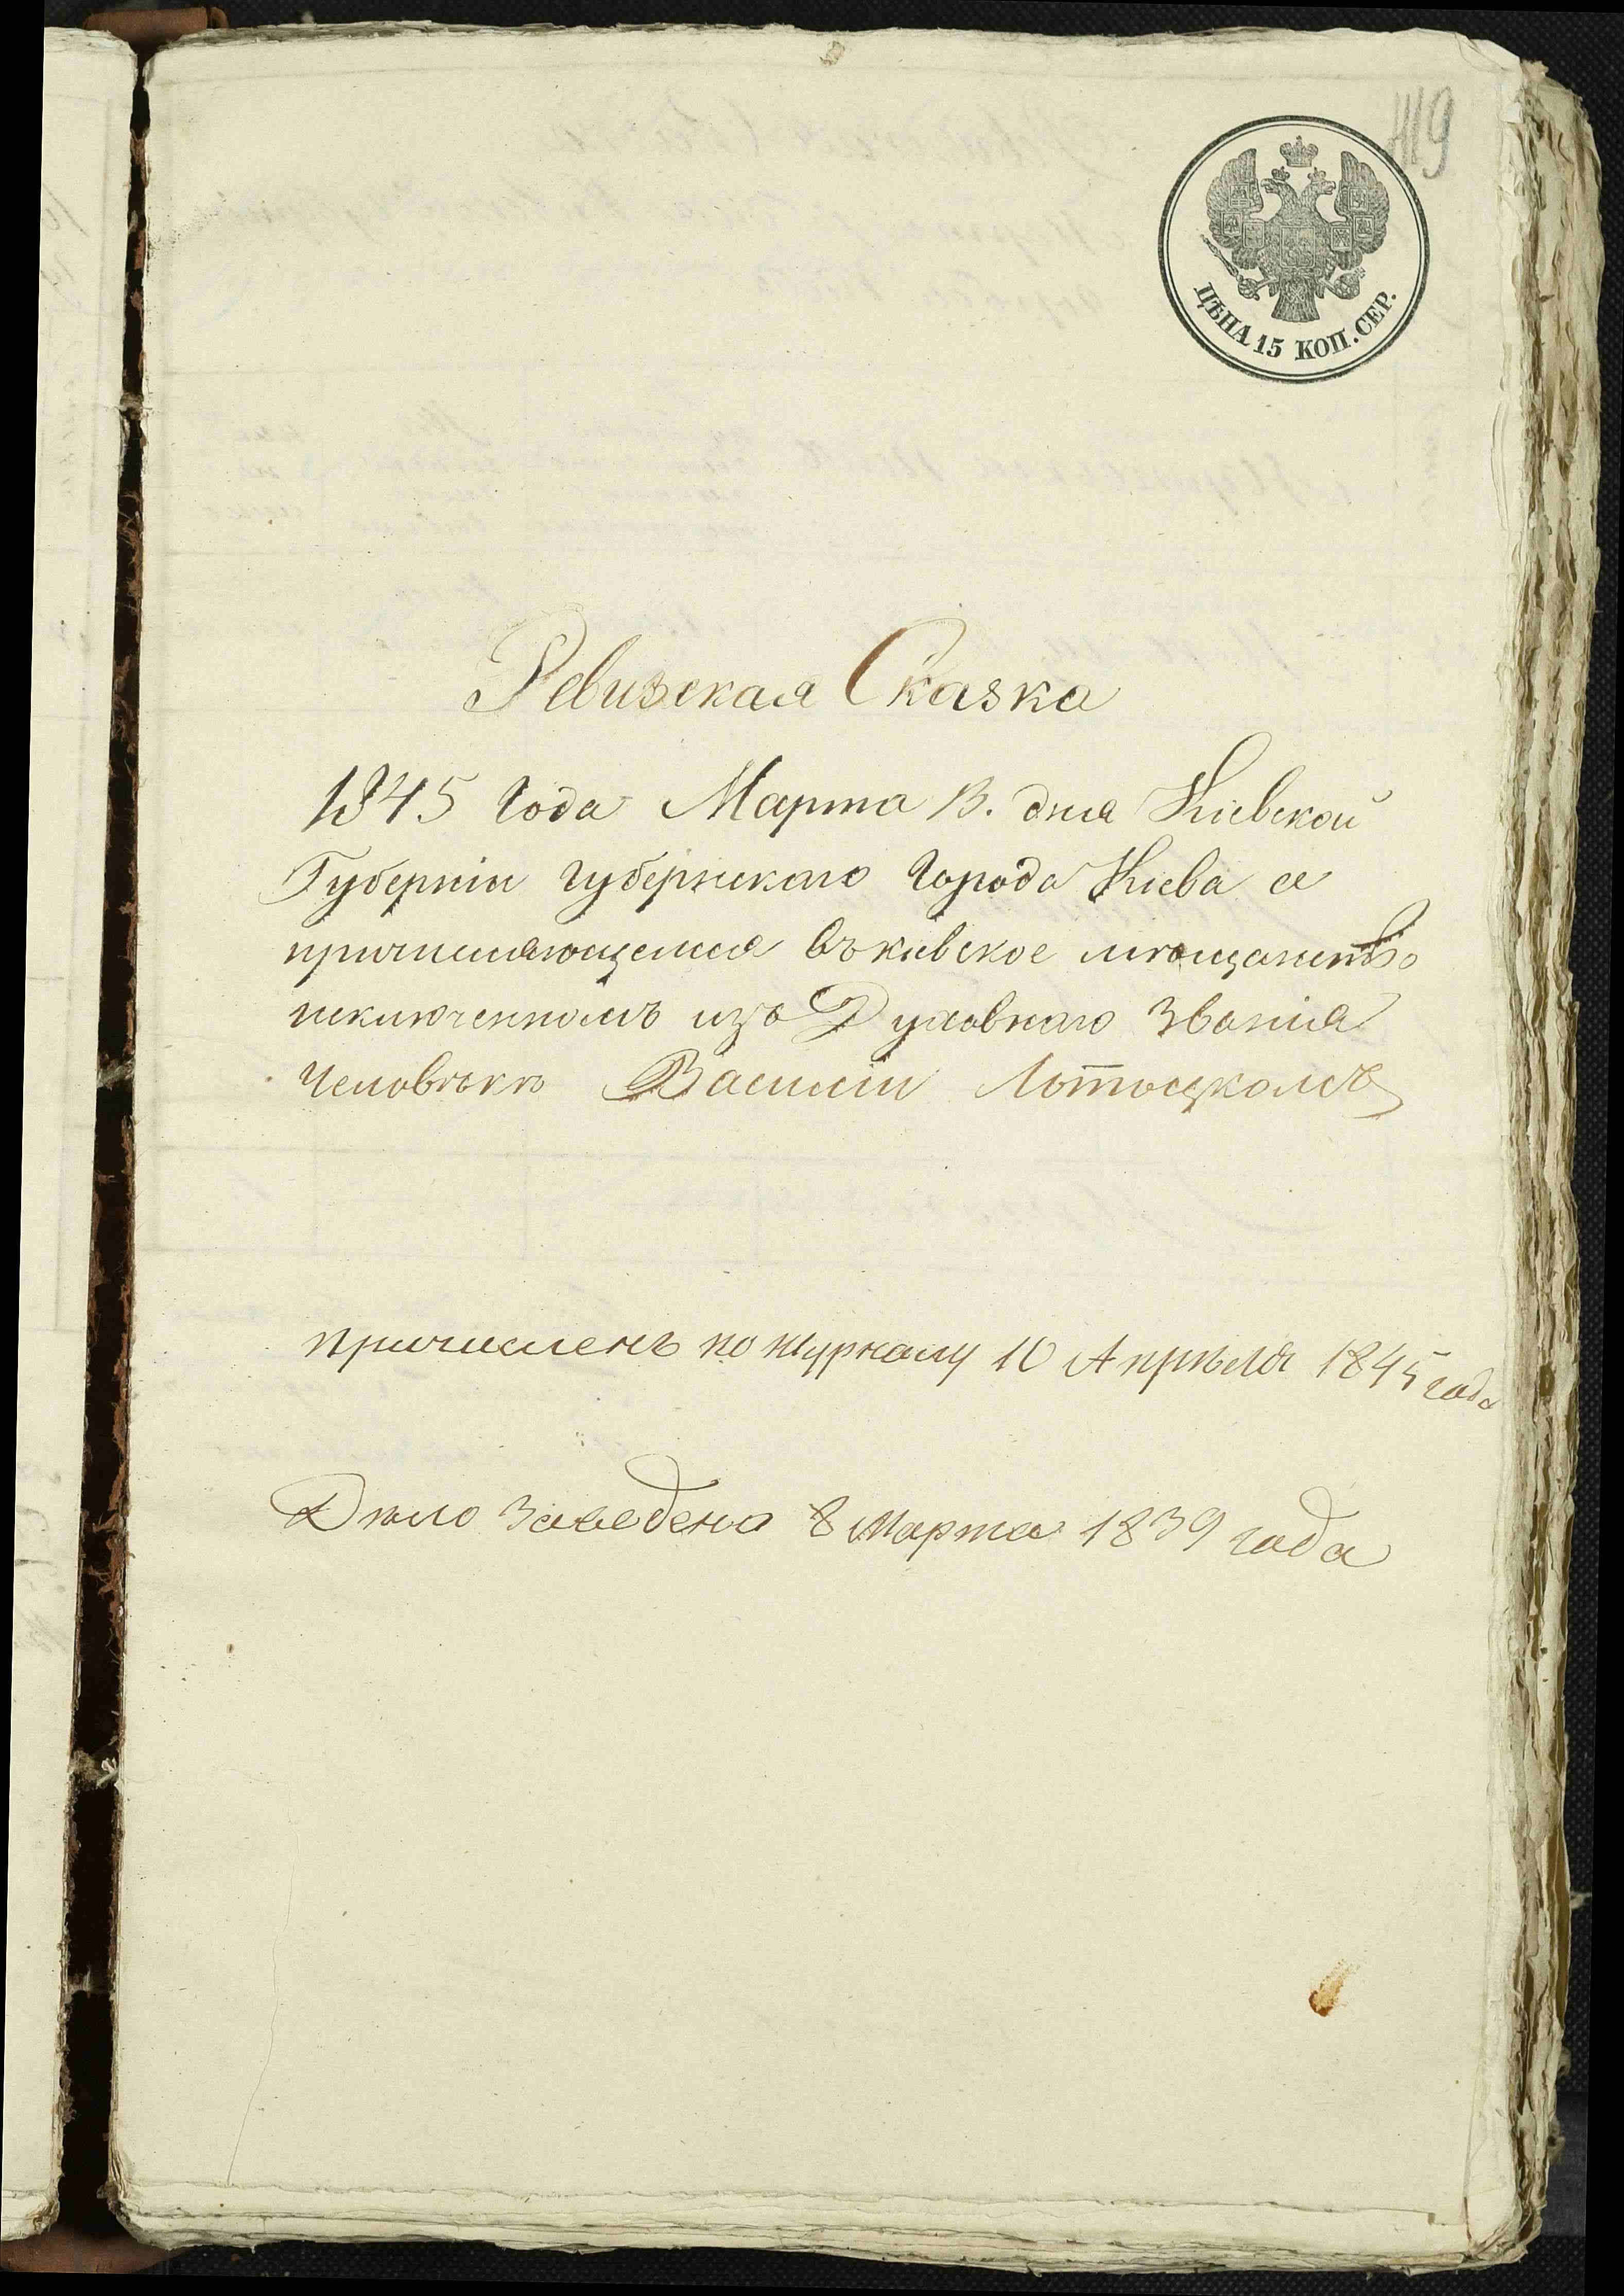 419
ЦѢНА 15 КОП. СЕР.
Ревизская Сказка
1845 Года Марта 13. дня Кіевской
Губерніи губернскаго Города Кіева о
причисляющемся въ кіевское мѣщанство
исключенномъ изъ Духовнаго Званія
Человѣкѣ Василіи Лотоцкомъ
Причисленъ по журналу 10 Апрѣля 1845 года
Дѣло заведено 8 Марта 1839 года